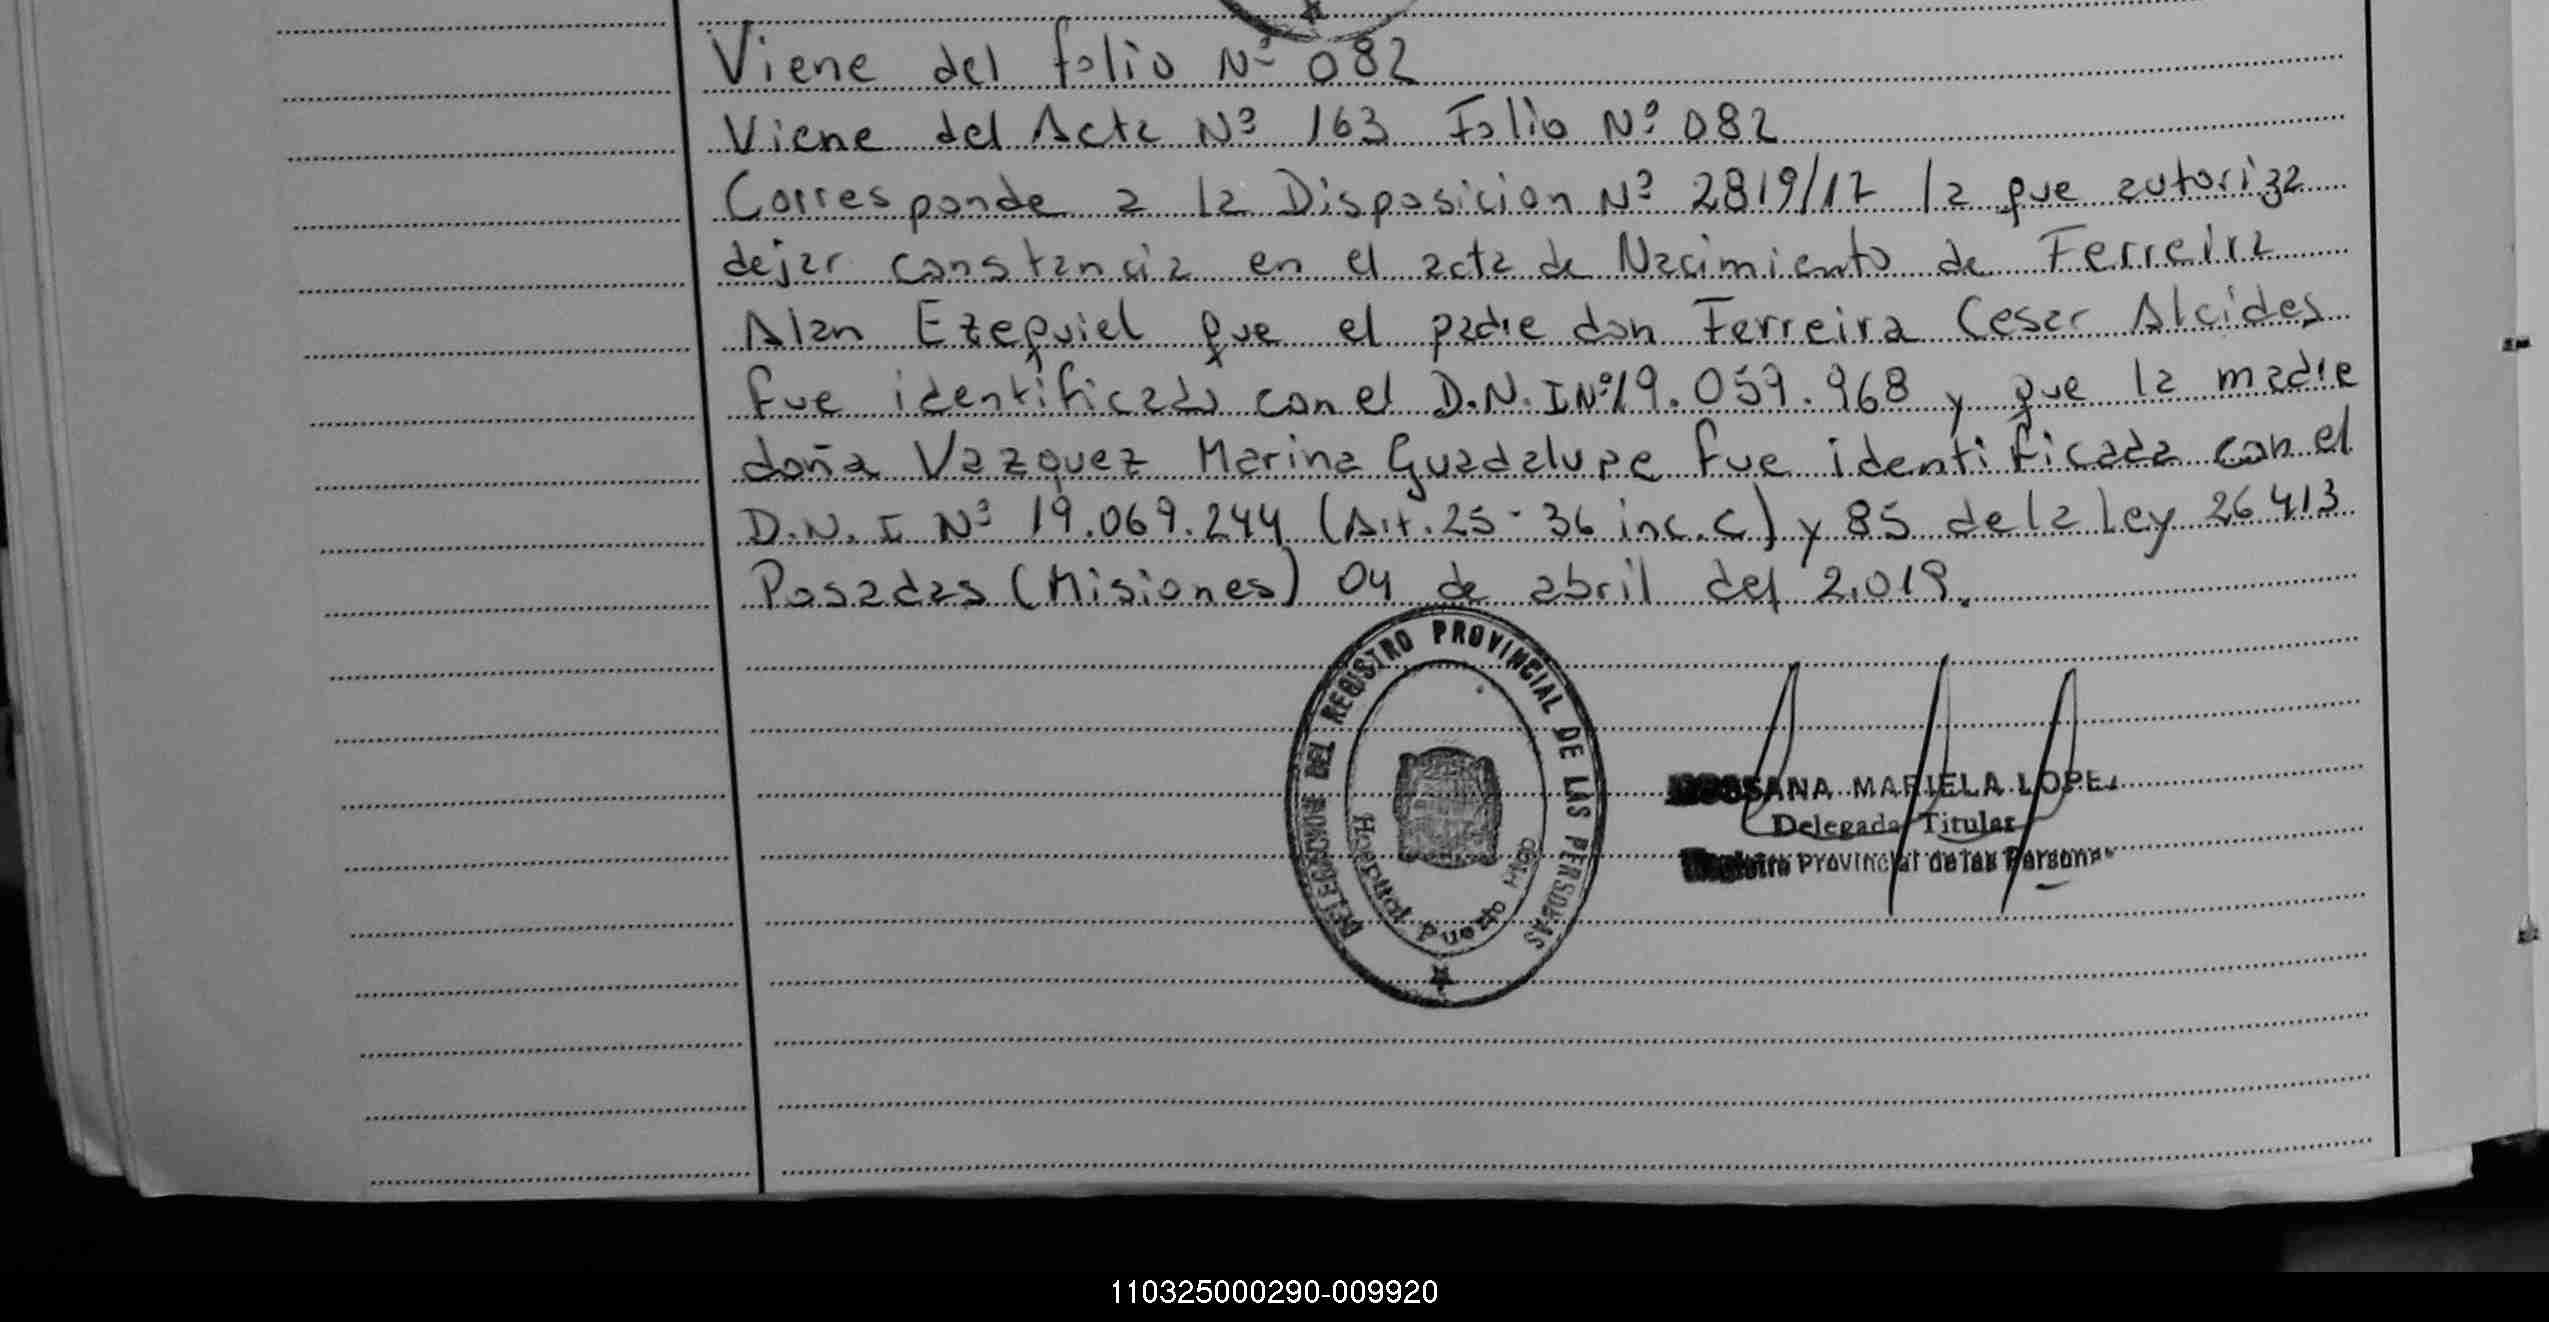 Viene del folio Nº 082
Viene del Acta Nº 163 Folio Nº 082
Corresponde a la Disposicion Nº 2819/17 la que autoriza
dejar constancia en el acta de Nacimiento de Ferreira
Alan Ezequiel que el padre don Ferreira Cesar Alcides
fue identificado con el D.N.I Nº 19.059.968 y que la madre
doña Vazquez Marina Guadalupe fue identificada con el
D.N.I Nº 19.069.244 (Art. 25 - 36 inc. C) y 85 de la Ley 26413
Posadas (Misiones) 04 de abril del 2.019.
DELEGACION DEL REGISTRO PROVINCIAL DE LAS PERSONAS
Hospital Puerto
MARIELA LOPEZ
Delegada Titular
Provincial de las Personas
110325000290-009920